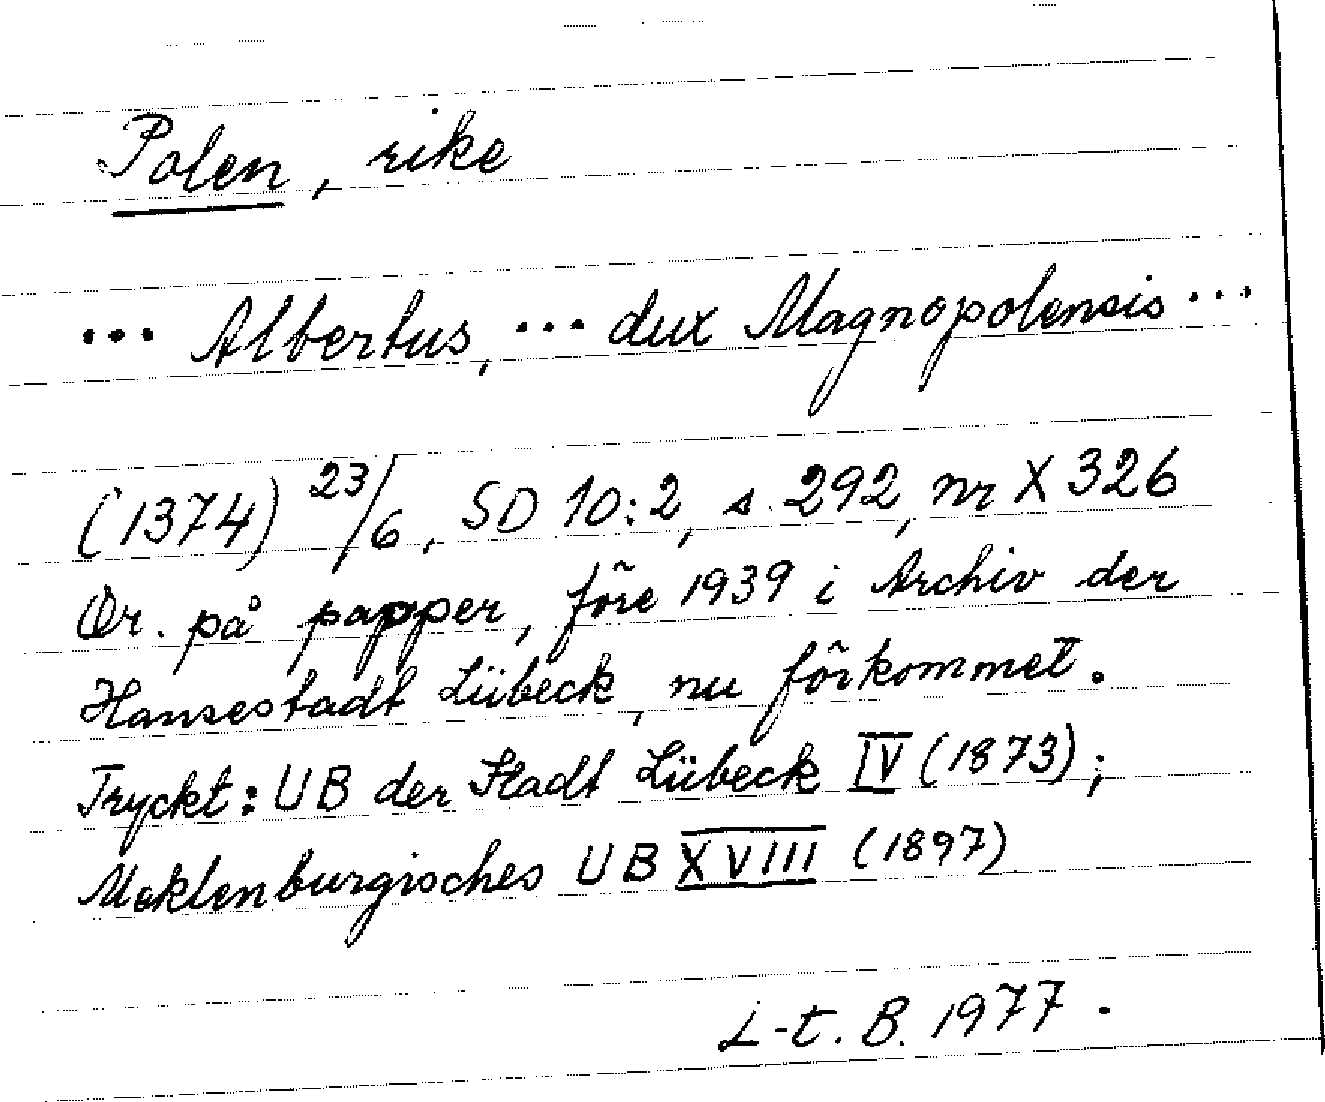 Polen, rike
... Albertus, ... dux Magnopolensis ...
(1374) 23/6, SD 10:2, s. 292, nr X 326
Or. på papper, före 1939 i Archiv der
Hansestadt Lübeck, nu förkommet.
Tryckt: UB der Stadt Lübeck IV (1873);
Meklenburgisches UB XVIII (1897)
L-t. B. 1977.